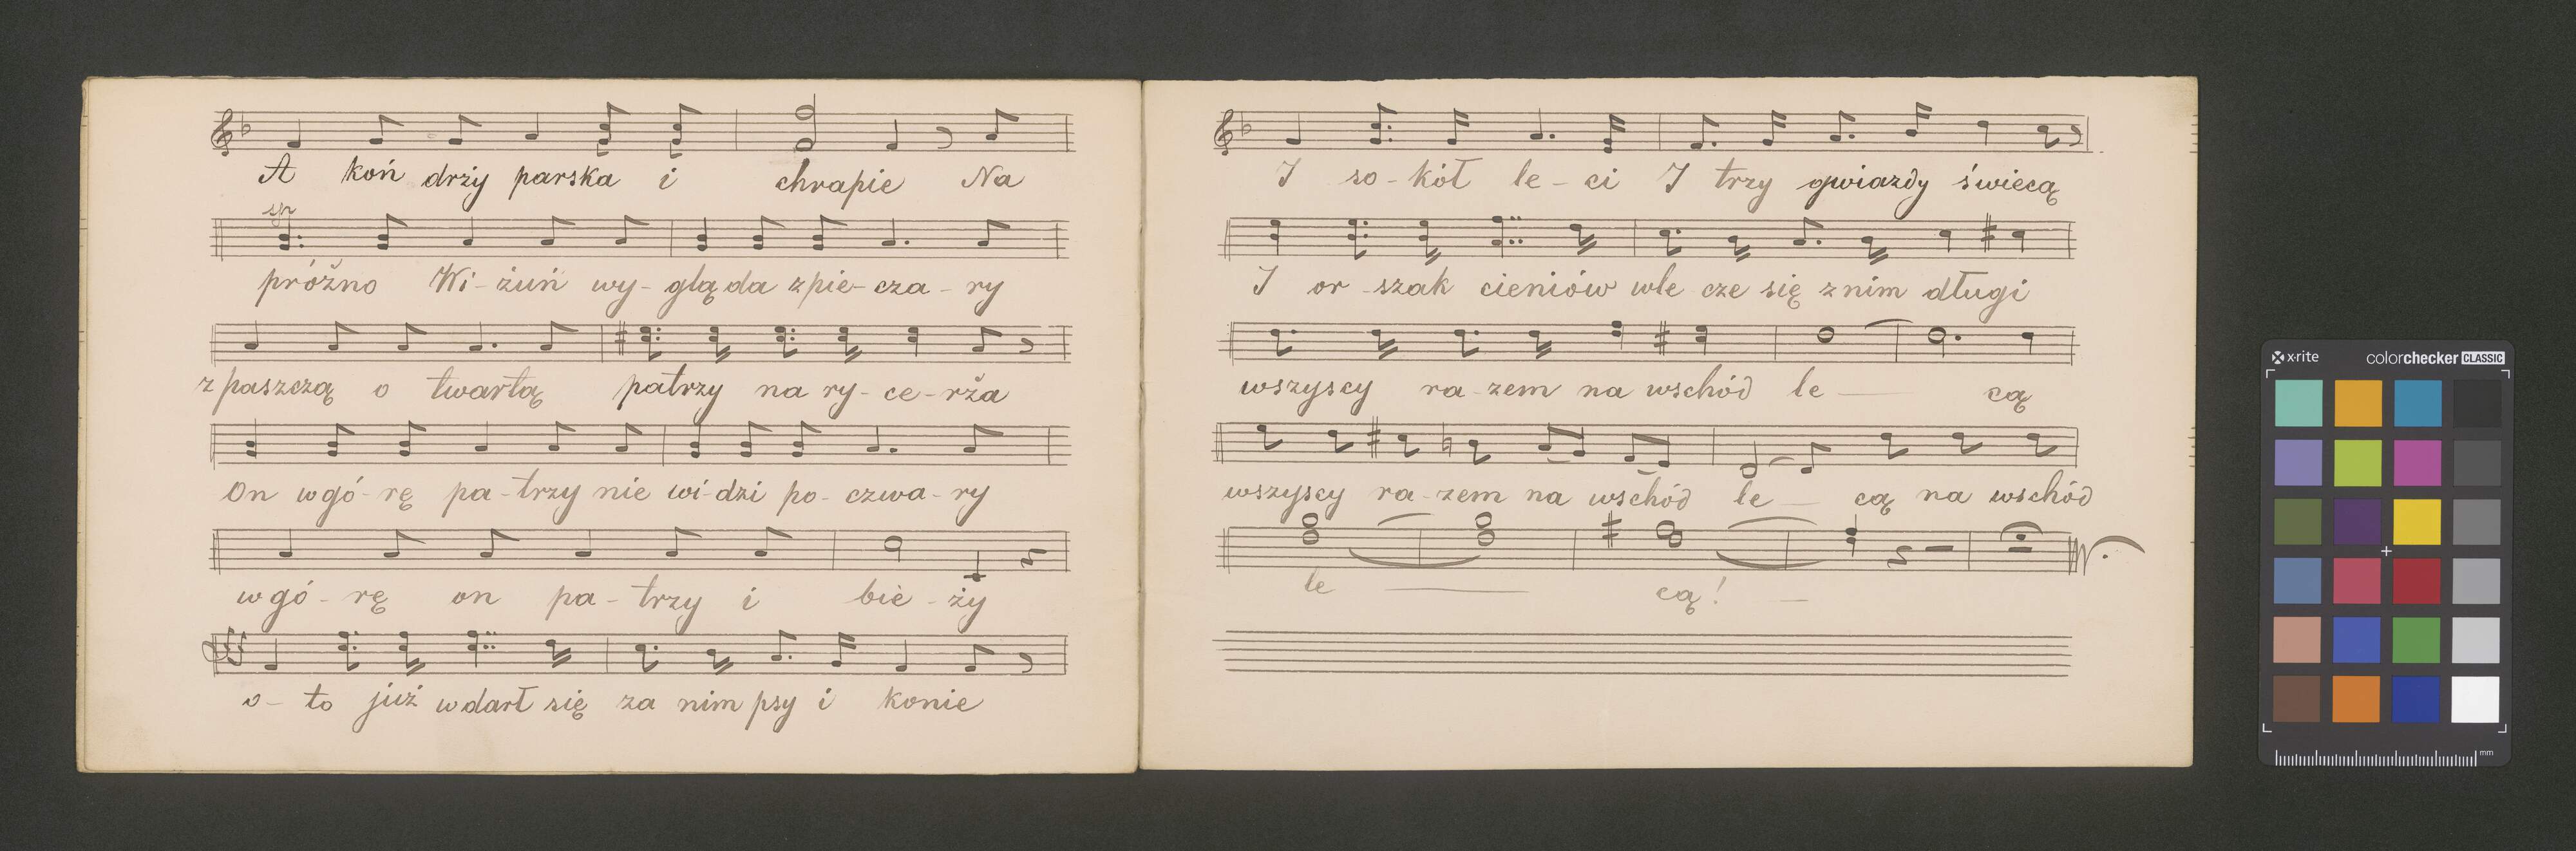 A koń drży parska i chrapie Na
sp
próžno Wi-żuń wy-glą da z pie-cza-ry
z paszczą o twartą patrzy na ry-ce-rža
On w gó-rę pa-trzy nie wi-dzi po-czwa-ry
w gó-rę on pa-trzy i bie-ży
o-to już wdarł się za nim psy i konie
I so-kół le-ci I trzy gwiazdy świecą
I or-szak cieniów wle cze się z nim długi
wszyscy ra-zem na wschód le — cą
wszyscy ra-zem na wschód le — cą na wschód
le — cą! —
x-rite colorchecker CLASSIC
mm